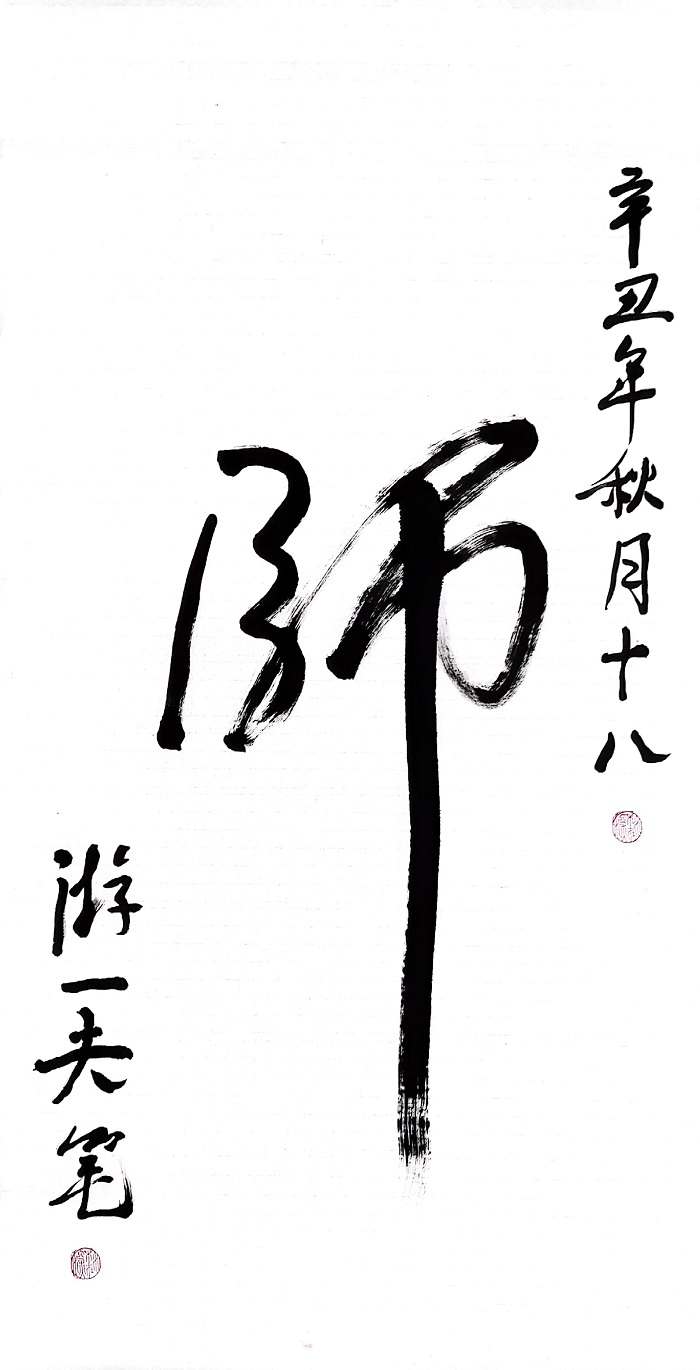 辛丑年秋月十八
师
游一夫笔